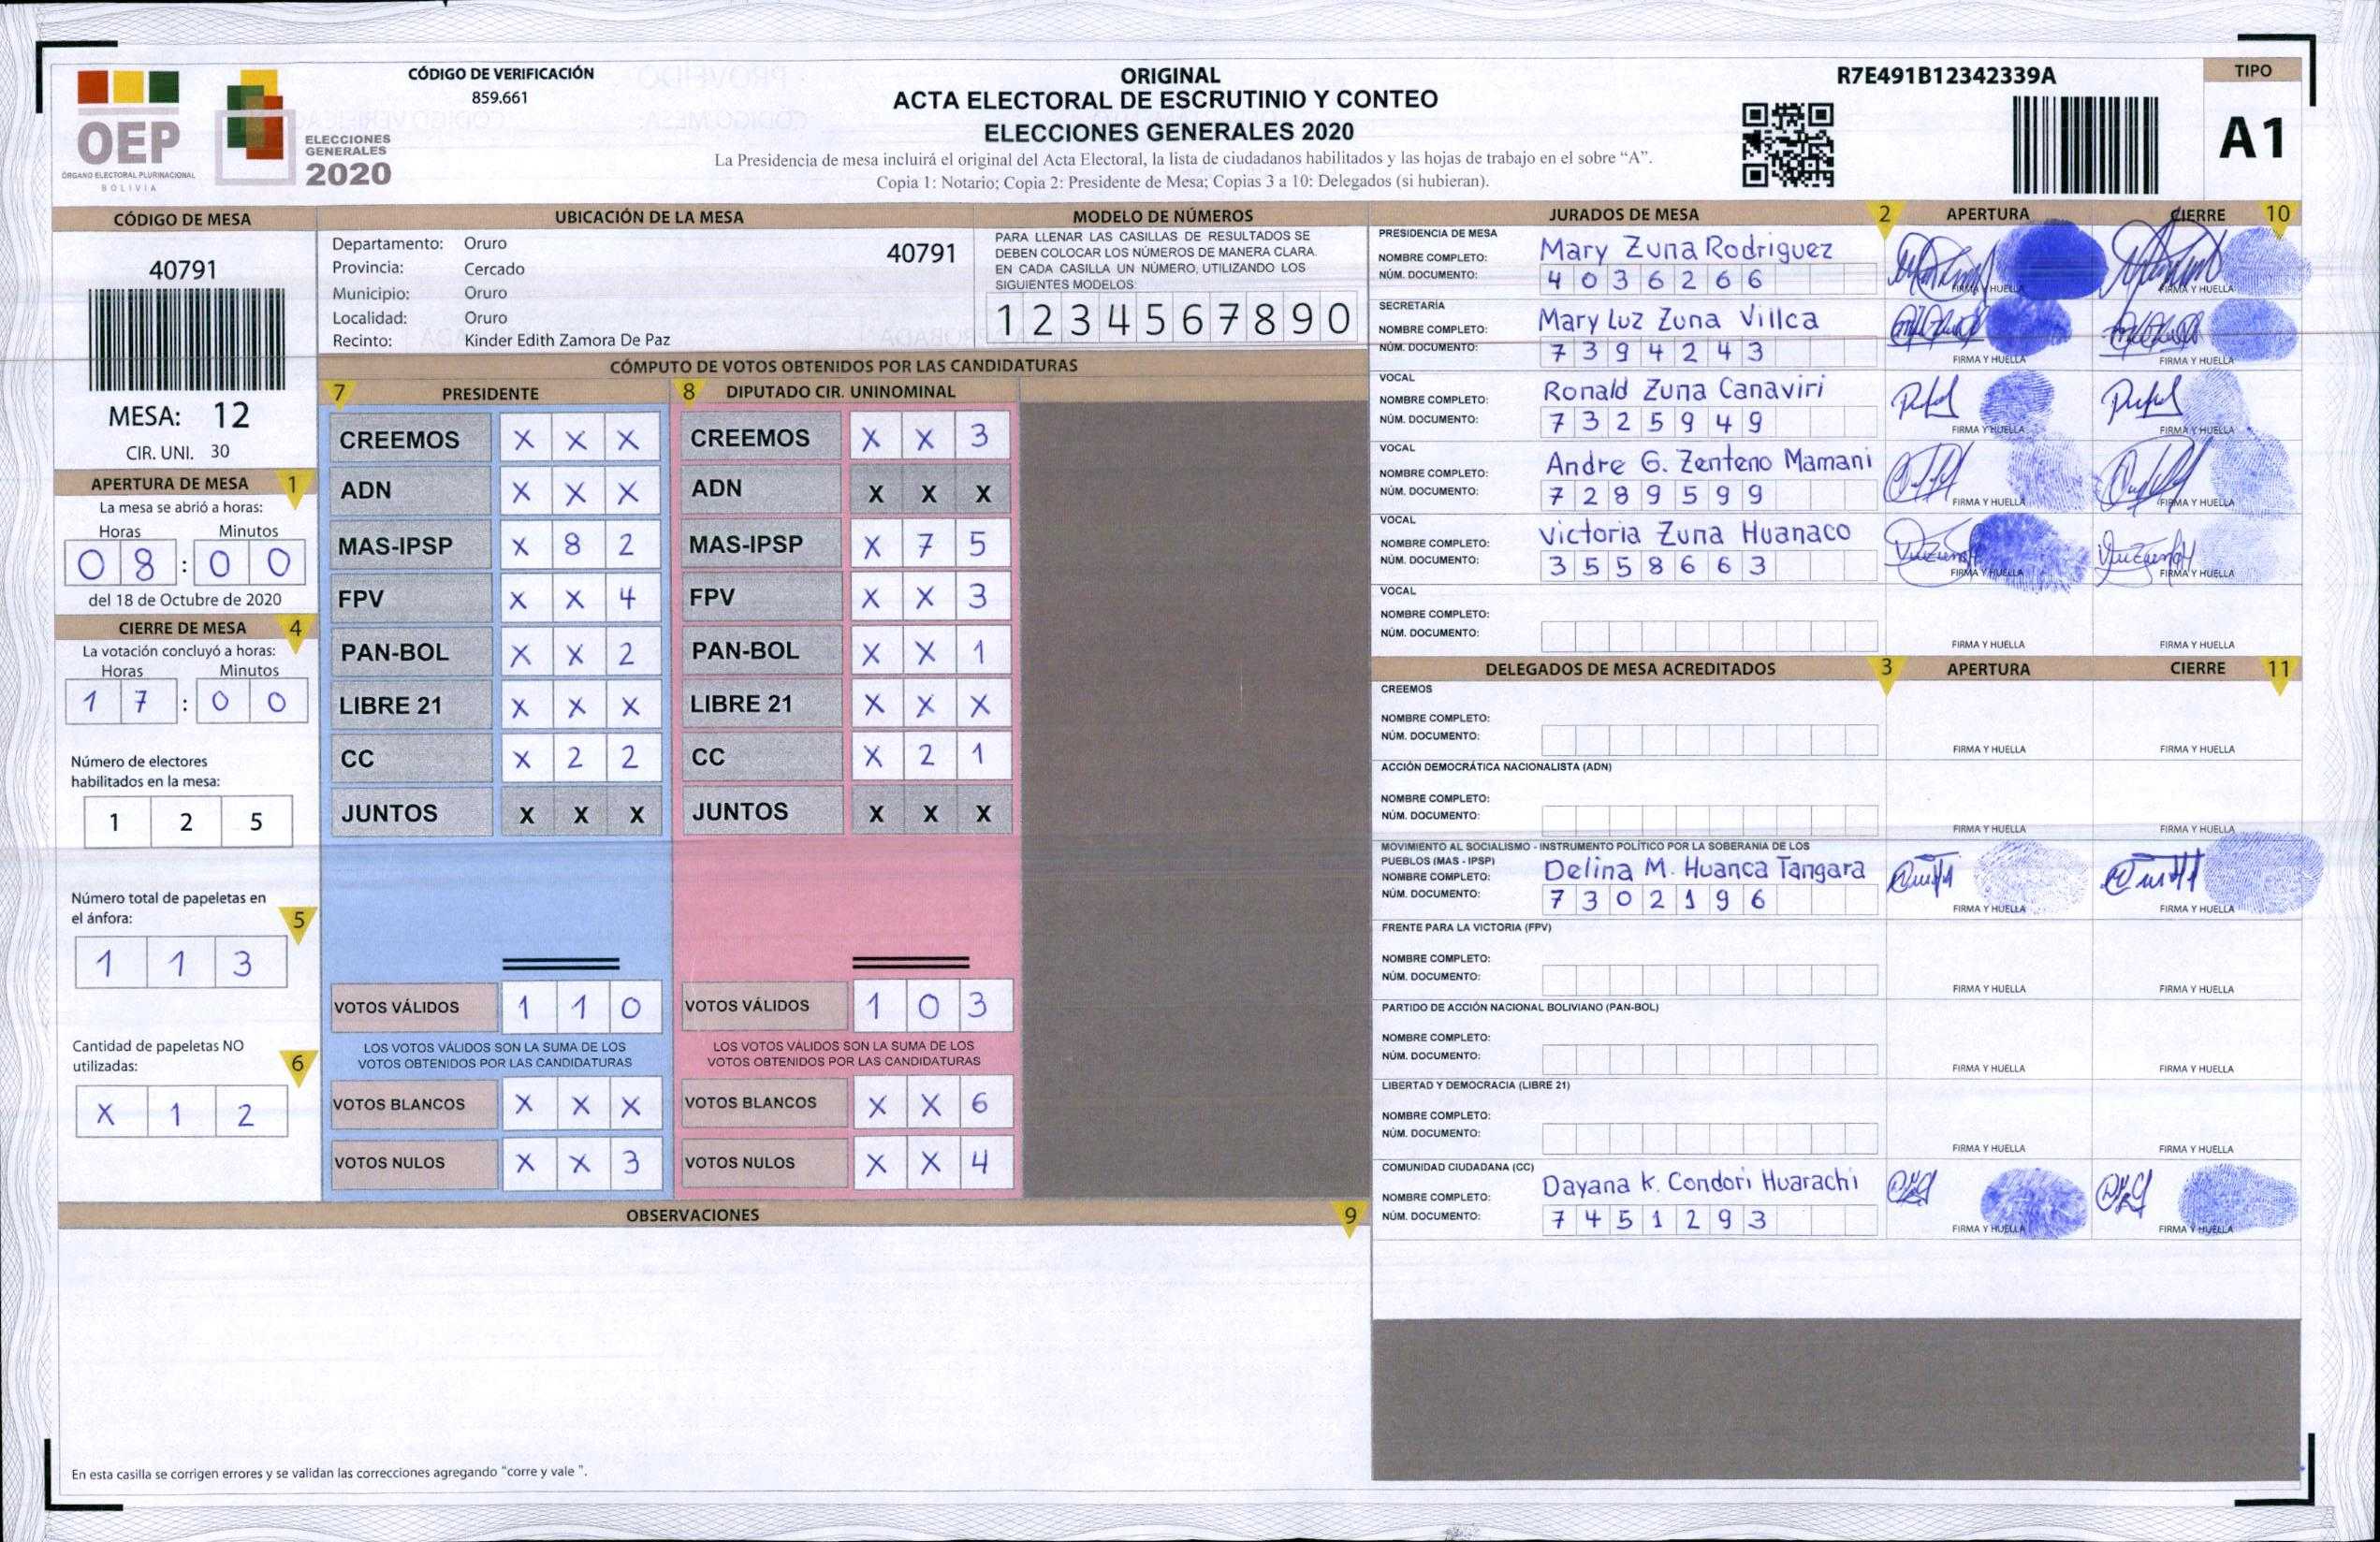 OEP
ÓRGANO ELECTORAL PLURINACIONAL
BOLIVIA
ELECCIONES
GENERALES
2020
CÓDIGO DE VERIFICACIÓN
859.661
ORIGINAL
ACTA ELECTORAL DE ESCRUTINIO Y CONTEO
ELECCIONES GENERALES 2020
La Presidencia de mesa incluirá el original del Acta Electoral, la lista de ciudadanos habilitados y las hojas de trabajo en el sobre “A”.
Copia 1: Notario; Copia 2: Presidente de Mesa; Copias 3 a 10: Delegados (si hubieran).
R7E491B12342339A
TIPO
A1
CÓDIGO DE MESA
40791
MESA: 12
CIR. UNI. 30
APERTURA DE MESA 1
La mesa se abrió a horas:
Horas Minutos
0 8 : 0 0
del 18 de Octubre de 2020
CIERRE DE MESA 4
La votación concluyó a horas:
Horas Minutos
1 7 : 0 0
Número de electores
habilitados en la mesa:
1 2 5
Número total de papeletas en
el ánfora: 5
1 1 3
Cantidad de papeletas NO
utilizadas: 6
X 1 2
UBICACIÓN DE LA MESA
Departamento: Oruro 40791
Provincia: Cercado
Municipio: Oruro
Localidad: Oruro
Recinto: Kinder Edith Zamora De Paz
MODELO DE NÚMEROS
PARA LLENAR LAS CASILLAS DE RESULTADOS SE
DEBEN COLOCAR LOS NÚMEROS DE MANERA CLARA.
EN CADA CASILLA UN NÚMERO, UTILIZANDO LOS
SIGUIENTES MODELOS:
1 2 3 4 5 6 7 8 9 0
CÓMPUTO DE VOTOS OBTENIDOS POR LAS CANDIDATURAS
7 PRESIDENTE
CREEMOS X X X
ADN X X X
MAS-IPSP X 8 2
FPV X X 4
PAN-BOL X X 2
LIBRE 21 X X X
CC X 2 2
JUNTOS X X X
VOTOS VÁLIDOS 1 1 0
LOS VOTOS VÁLIDOS SON LA SUMA DE LOS
VOTOS OBTENIDOS POR LAS CANDIDATURAS
VOTOS BLANCOS X X X
VOTOS NULOS X X 3
8 DIPUTADO CIR. UNINOMINAL
CREEMOS X X 3
ADN X X X
MAS-IPSP X 7 5
FPV X X 3
PAN-BOL X X 1
LIBRE 21 X X X
CC X 2 1
JUNTOS X X X
VOTOS VÁLIDOS 1 0 3
LOS VOTOS VÁLIDOS SON LA SUMA DE LOS
VOTOS OBTENIDOS POR LAS CANDIDATURAS
VOTOS BLANCOS X X 6
VOTOS NULOS X X 4
OBSERVACIONES 9
En esta casilla se corrigen errores y se validan las correcciones agregando “corre y vale ”.
JURADOS DE MESA 2 APERTURA CIERRE 10
PRESIDENCIA DE MESA
NOMBRE COMPLETO: Mary Zuna Rodriguez
NÚM. DOCUMENTO: 4 0 3 6 2 6 6
FIRMA Y HUELLA FIRMA Y HUELLA
SECRETARÍA
NOMBRE COMPLETO: Mary Luz Zuna Villca
NÚM. DOCUMENTO: 7 3 9 4 2 4 3
FIRMA Y HUELLA FIRMA Y HUELLA
VOCAL
NOMBRE COMPLETO: Ronald Zuna Canaviri
NÚM. DOCUMENTO: 7 3 2 5 9 4 9
FIRMA Y HUELLA FIRMA Y HUELLA
VOCAL
NOMBRE COMPLETO: Andre G. Zenteno Mamani
NÚM. DOCUMENTO: 7 2 8 9 5 9 9
FIRMA Y HUELLA FIRMA Y HUELLA
VOCAL
NOMBRE COMPLETO: Victoria Zuna Huanaco
NÚM. DOCUMENTO: 3 5 5 8 6 6 3
FIRMA Y HUELLA FIRMA Y HUELLA
VOCAL
NOMBRE COMPLETO:
NÚM. DOCUMENTO:
FIRMA Y HUELLA FIRMA Y HUELLA
DELEGADOS DE MESA ACREDITADOS 3 APERTURA CIERRE 11
CREEMOS
NOMBRE COMPLETO:
NÚM. DOCUMENTO:
FIRMA Y HUELLA FIRMA Y HUELLA
ACCIÓN DEMOCRÁTICA NACIONALISTA (ADN)
NOMBRE COMPLETO:
NÚM. DOCUMENTO:
FIRMA Y HUELLA FIRMA Y HUELLA
MOVIMIENTO AL SOCIALISMO - INSTRUMENTO POLÍTICO POR LA SOBERANIA DE LOS
PUEBLOS (MAS - IPSP)
NOMBRE COMPLETO: Delina M. Huanca Tangara
NÚM. DOCUMENTO: 7 3 0 2 1 9 6
FIRMA Y HUELLA FIRMA Y HUELLA
FRENTE PARA LA VICTORIA (FPV)
NOMBRE COMPLETO:
NÚM. DOCUMENTO:
FIRMA Y HUELLA FIRMA Y HUELLA
PARTIDO DE ACCIÓN NACIONAL BOLIVIANO (PAN-BOL)
NOMBRE COMPLETO:
NÚM. DOCUMENTO:
FIRMA Y HUELLA FIRMA Y HUELLA
LIBERTAD Y DEMOCRACIA (LIBRE 21)
NOMBRE COMPLETO:
NÚM. DOCUMENTO:
FIRMA Y HUELLA FIRMA Y HUELLA
COMUNIDAD CIUDADANA (CC)
NOMBRE COMPLETO: Dayana K. Condori Huarachi
NÚM. DOCUMENTO: 7 4 5 1 2 9 3
FIRMA Y HUELLA FIRMA Y HUELLA